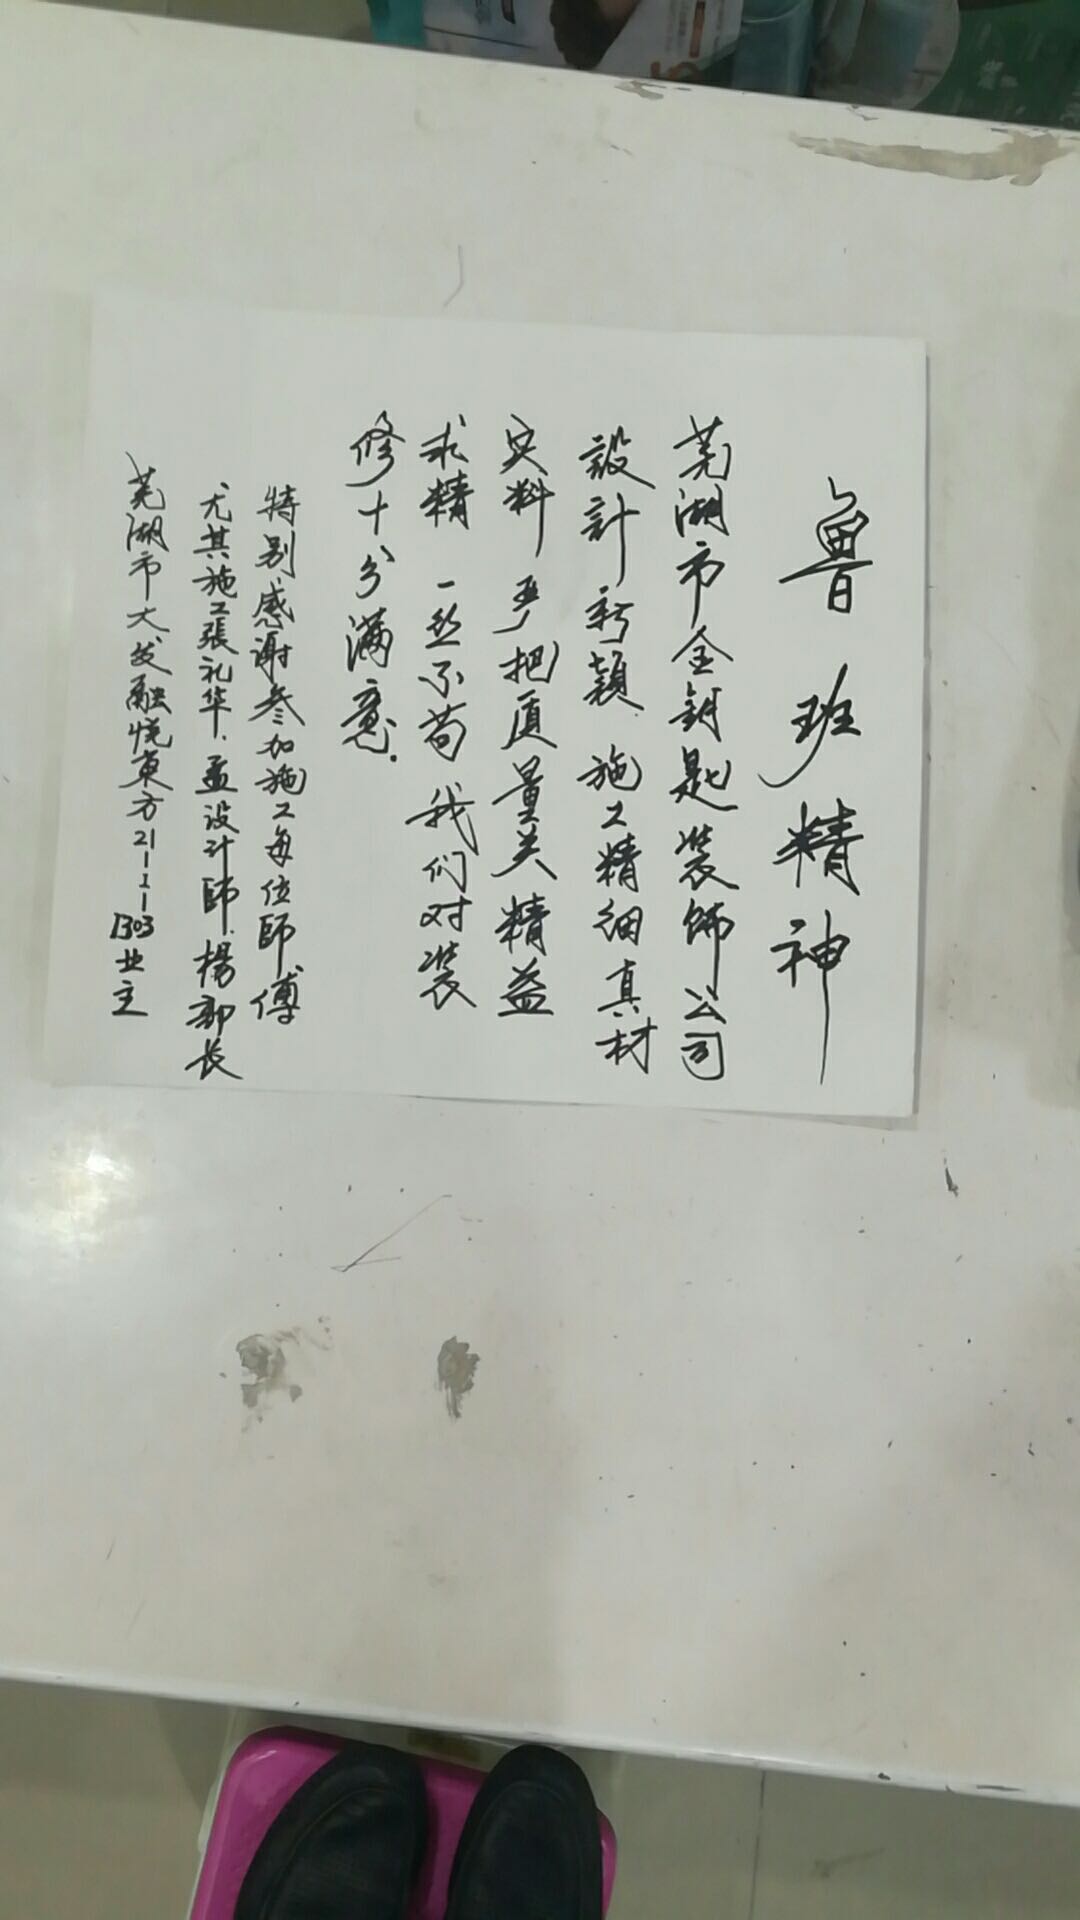 魯班精神
芜湖市金钥匙装饰公司
設計新颖.施工精细真材
实料严把质量关精益
求精一丝不苟我们对装
修十分满意.
特别感谢参加施工每位師傅
尤其施工張礼华.孟设计師.楊部长
芜湖市大发融悦東方21-1-1303业主